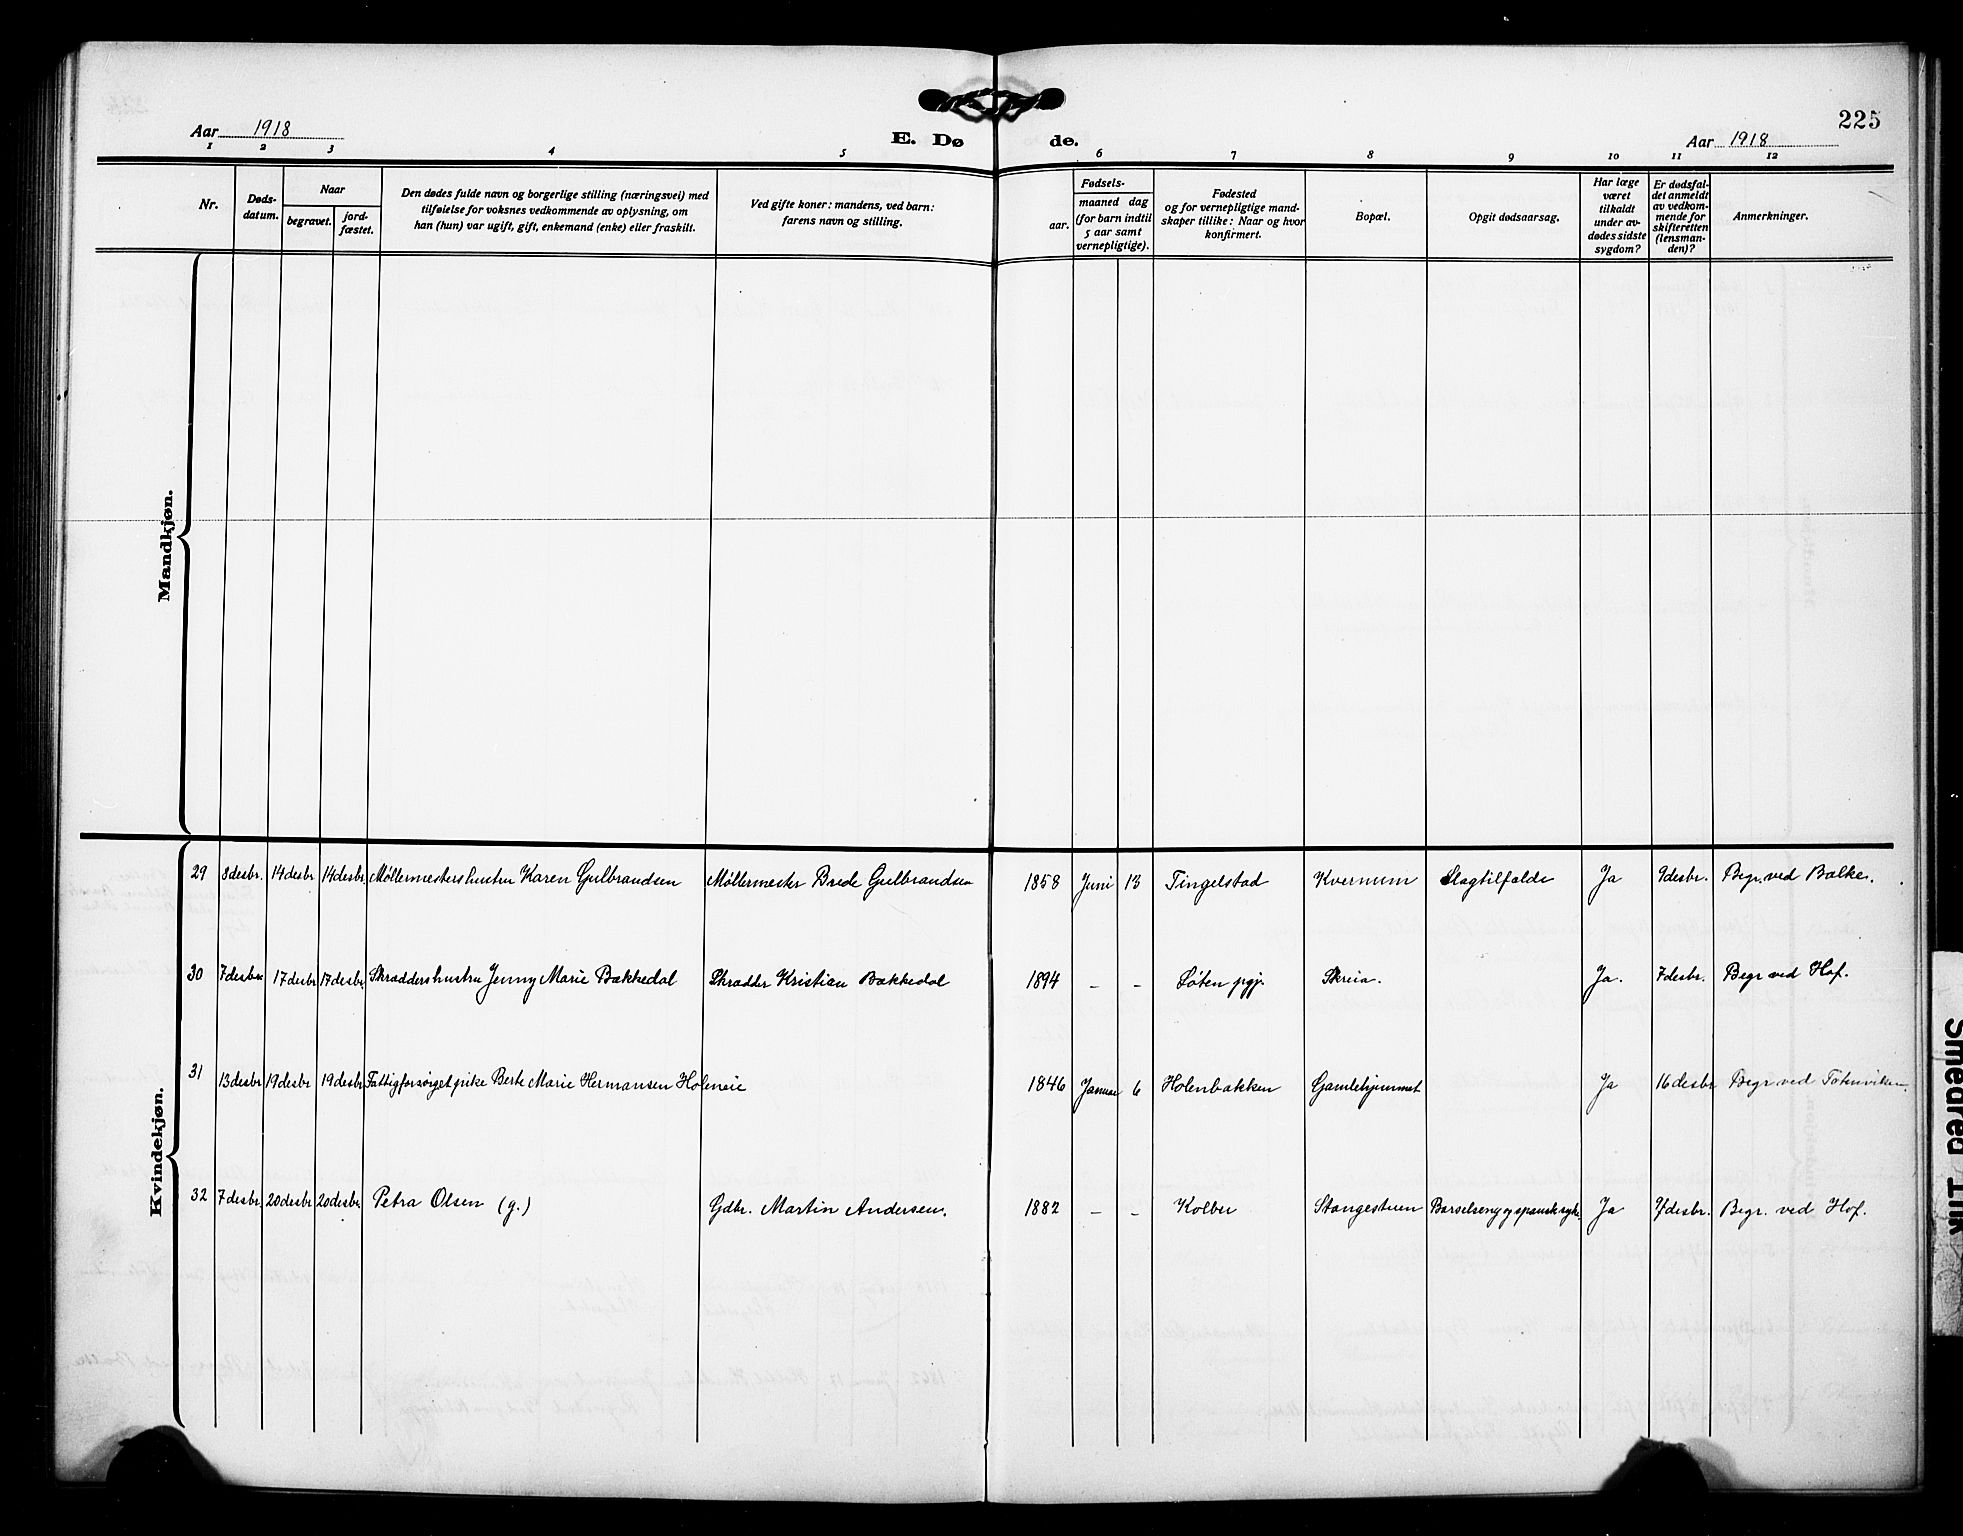 225
Aar 1918
E. Dø de.
Aar 1918
1 2 3 4 5 6 7 8 9 10 11 12
Nr.
Døds-
datum.
Naar
begravet.
jord-
fæstet.
Den dødes fulde navn og borgerlige stilling (næringsvei) med
tilføielse for voksnes vedkommende av oplysning, om
han (hun) var ugift, gift, enkemand (enke) eller fraskilt.
Ved gifte koner: mandens, ved barn:
farens navn og stilling.
Fødsels-
aar.
maaned dag
(for barn indtil
5 aar samt
vernepligtige).
Fødested
og for vernepligtige mand-
skaper tillike: Naar og hvor
konfirmert.
Bopæl.
Opgit dødsaarsag.
Har læge
været
tilkaldt
under av-
dødes sidste
sygdom?
Er dødsfal-
det anmeldt
av vedkom-
mende for
skifteretten
(lensman-
den)?
Anmerkninger.
Mandkjøn.
Kvindekjøn.
29 8 desbr. 14 desbr 14 desbr. Møllermestershustru Karen Gulbrandsen Møllermester Brede Gulbrandsen 1858 Juni 13 Tingelstad Kvernum Slagtilfælde Ja 9 desbr. Begr. ved Balke.
30 7 desbr 17 desbr 17 desbr. Skræddershustru Jenny Marie Bakkedal Skrædder Kristian Bakkedal 1894 – – Løten pgj. Skreia. Ja. 7 desbr. Begr ved Hof.
31 13 desbr 19 desbr 19 desbr Fattigforsørget pike Berte Marie Hermansen Holeneie 1846 Januar 6 Holenbakken Gamlehjemmet Ja 16 desbr Begr ved Totenviken.
32 7 desbr. 20 desbr 20 desbr. Petra Olsen (g.) Gdbr. Martin Andersen. 1882 – – Kolbu Stangestuen Barselseng og spansk syke. Ja desbr. Begr. ved Hof.
Smeared Ink